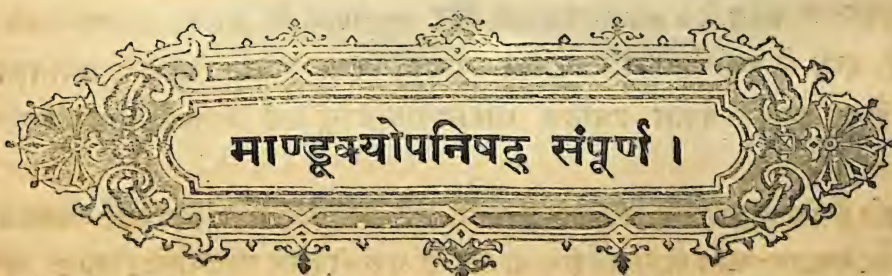 माण्डूक्योपनिषद् संपूर्ण ।